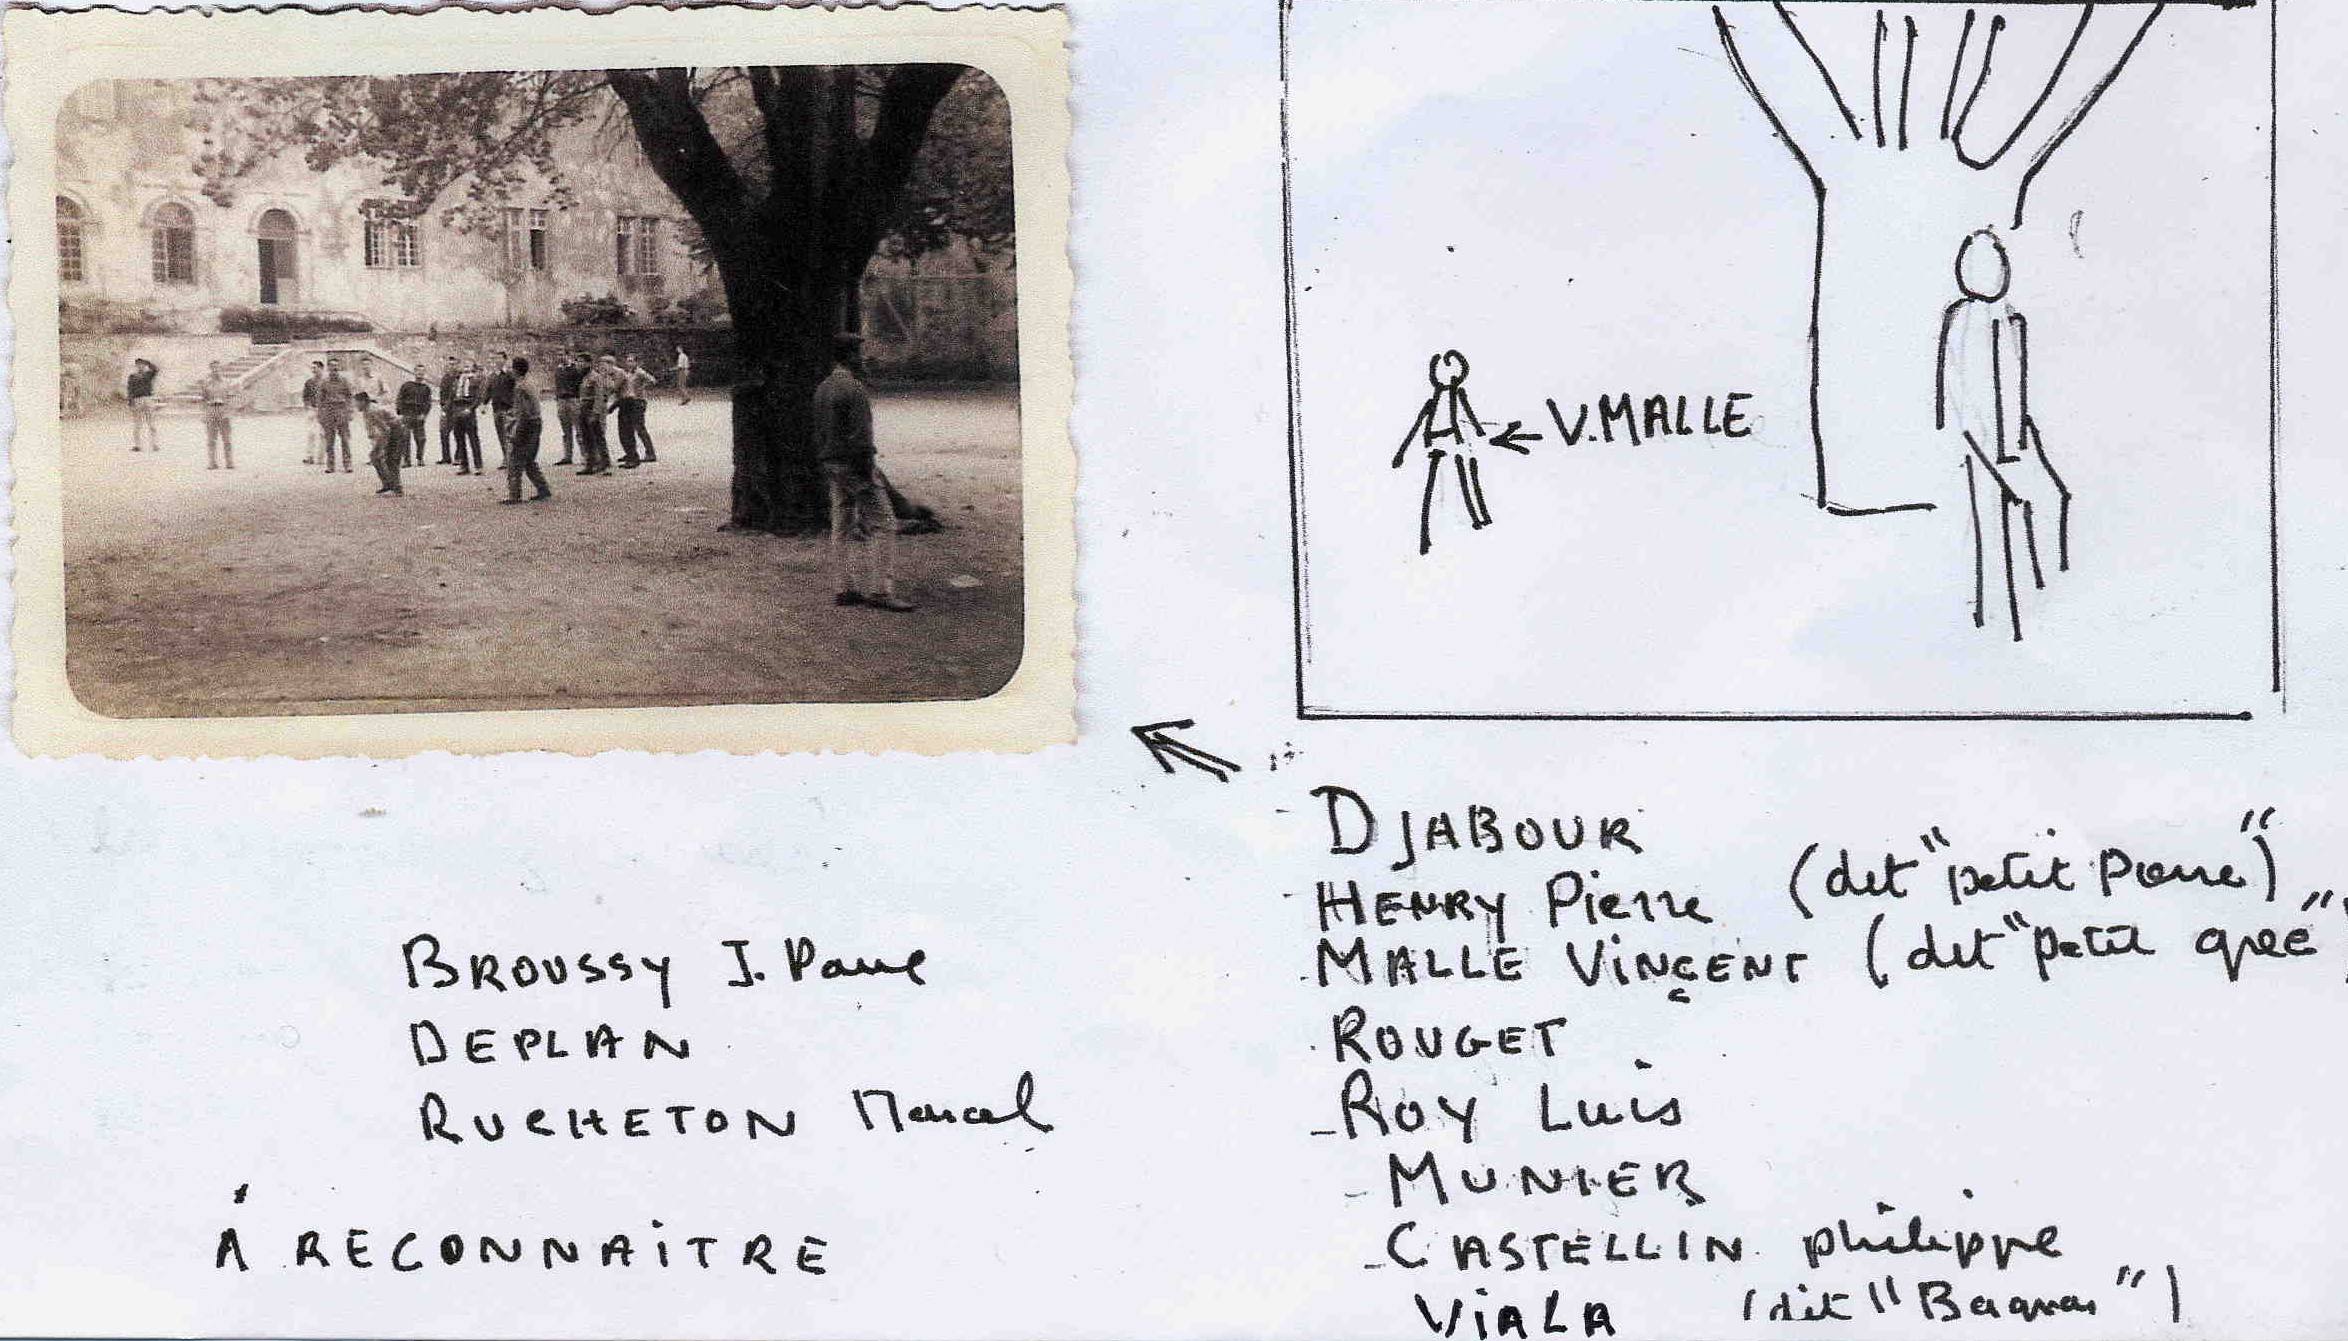 ← V.MALLE
DJABOUR
HENRY Pierre (dit "petit Pierre")
MALLE VINCENT (dit "petit gréé")
ROUGET
ROY Luis
MUNIER
CASTELLIN philippe
VIALA (dit "Bagnas")
BROUSSY J. Paul
DEPLAN
RUCHETON Marcel
À RECONNAITRE